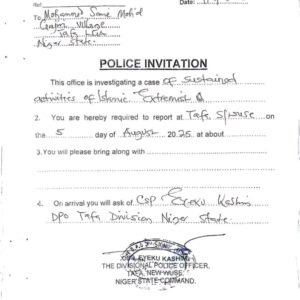 Ref
Date:
To Mohammed Sane Moh'd
Village
Tafa
Niger State.
POLICE INVITATION
This office is investigating a case of sustained
activities of Islamic Extremist
2. You are hereby required to report at Tafa on
the 5 day of August 2025 at about
3. You will please bring along with
4. On arrival you will ask of CSP Eyeku Kashim
DPO Tafa Division Niger State.
EYEKU KASHIM
THE DIVISIONAL POLICE OFFICER,
TAFA, NEW-WUSE,
NIGER STATE COMMAND.